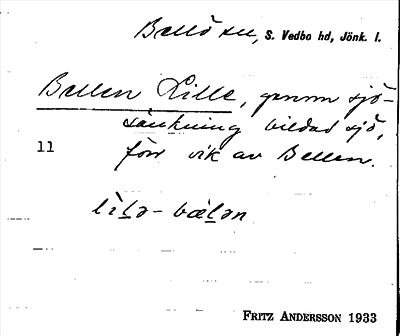 Bellö sn, S. Vedbo hd, Jönk. l.
Bellen Lille, genom sjö-
sänkning bildad sjö,
11 förr vik av Bellen.
lìlə-bæ̀lən
FRITZ ANDERSSON 1933